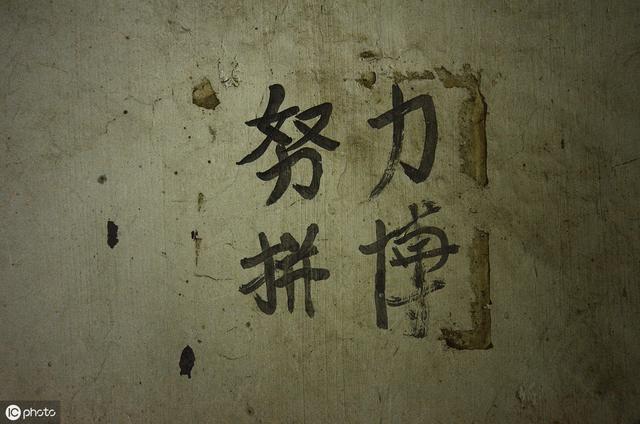 努力
拼博
IC photo